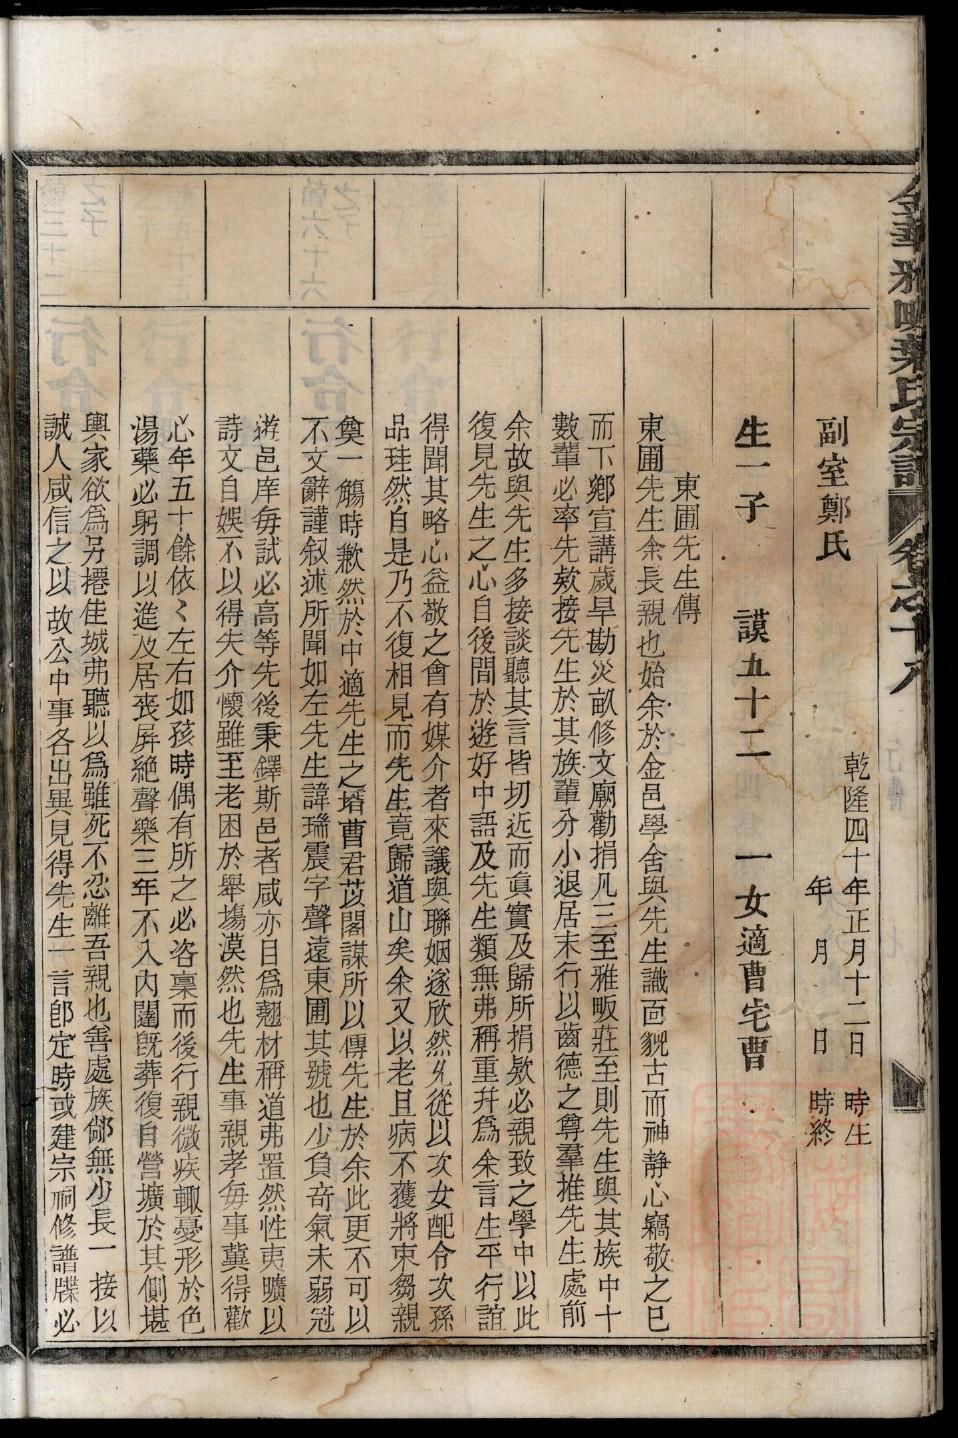 金華雅畈葉氏宗譜 卷之十六
副室鄭氏
乾隆四十年正月十二日 時生
年 月 日 時終
生一子 謨五十二 一女適曹宅曹
東圃先生傳
東圃先生余長親也始余於金邑學舍與先生識面貌古而神静心竊敬之已
而下鄉宣講歲旱勘災畝修文廟勸捐凡三至雅畈莊至則先生與其族中十
數輩必率先欸接先生於其族輩分小退居末行以齒德之尊羣推先生處前
余故與先生多接談聽其言皆切近而眞實及歸所捐欵必親致之學中以此
復見先生之心自後間於遊好中語及先生類無弗稱重幷爲余言生平行誼
得聞其略心益敬之會有媒介者來議與聯姻遂欣然允從以次女配令次孫
品珪然自是乃不復相見而先生竟歸道山矣余又以老且病不獲將束芻親
奠一觴時歉然於中適先生之壻曹君苡閣謀所以傳先生於余此更不可以
不文辭謹叙述所聞如左先生諱瑞震字聲遠東圃其號也少負奇氣未弱冠
遊邑庠每試必高等先後秉鐸斯邑者咸亦目爲翹材稱道弗置然性夷曠以
詩文自娛不以得失介懷雖至老困於舉塲漠然也先生事親孝每事冀得歡
心年五十餘依〻左右如孩時偶有所之必咨稟而後行親微疾輙憂形於色
湯藥必躬調以進及居喪屏絶聲樂三年不入内闥旣葬復自營壙於其側堪
輿家欲爲另擇佳城弗聽以爲雖死不忍離吾親也善處族鄰無少長一接以
誠人咸信之以故公中事各出異見得先生一言卽定時或建宗祠修譜牒必